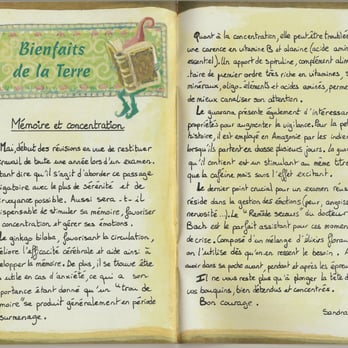 Bienfaits
de la Terre
Mémoire et concentration
Mai, début des révisions en vue de restituer
travail de toute une année lors d'un examen.
tant dire qu'il s'agit d'aborder ce passage
igatoire avec le plus de sérénité et de
irvoyance possible. Aussi sera-t-il
ispensable de stimuler sa mémoire, favoriser
concentration et gérer ses émotions.
Le ginkgo biloba, favorisant la circulation,
méliore l'efficacité cérébrale et aide ainsi à
elopper la mémoire. De plus, il se trouve être
utile en cas d'anxiété, ce qui a son
portance étant donné qu'un "trou de
moire" se produit généralement en période
surmenage.
Quant à la concentration, elle peut être troublée
une carence en vitamine B et alanine (acide aminé
essentiel). Un apport de spiruline, complément alimen
taire de premier ordre très riche en vitamines,
minéraux, oligo-éléments et acides aminés, permet
de mieux canaliser son attention.
Le guarana présente également d'intéressantes
propriétés pour augmenter la vigilance. Pour la petite
histoire, il est employé en Amazonie par les indiens
lorsqu'ils partent en chasse plusieurs jours. La
qu'il contient est un stimulant au même titre
que la caféine mais sans l'effet excitant.
Le dernier point crucial pour un examen réussi
réside dans la gestion des émotions (peur, angoisse
nervosité...). Le "Remède secours" du docteur
Bach est le parfait assistant pour ces moments
de crise. Composé d'un mélange d'élixirs floraux
on l'utilise dès qu'on en ressent le besoin. A
avoir dans sa poche avant, pendant et après les épreuves
Il ne vous reste plus qu'à plonger la tête
vos bouquins, bien détendus et concentrés.
Bon courage.
Sandra